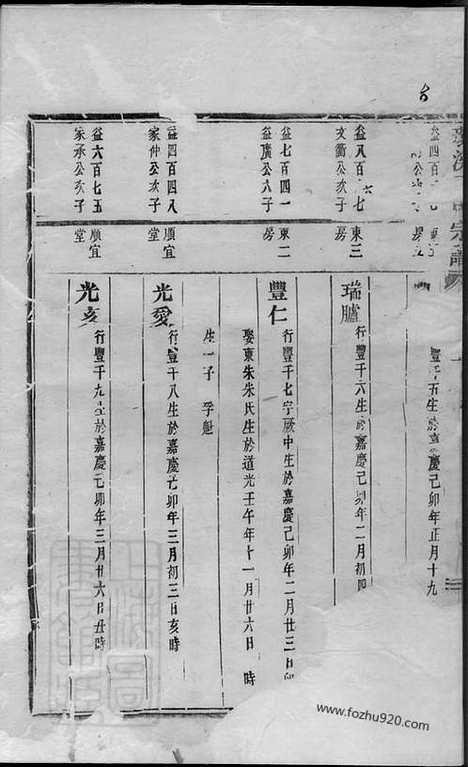 宗譜
益四百
豐千五生於嘉慶己卯年正月十九
益八百 七 東三
文衢公次子 房
瑞臚 行豐千六生於嘉慶己卯年二月初四
益七百四一 東二
益廣公六子 房
豐仁 行豐千七字厥中生於嘉慶己卯年二月廿三日卯
娶東朱朱氏生於道光壬午年十一月廿六日 時
生一子 孚魁
益四百四八 順宜
家仲公次子 堂
光愛 行豐千八生於嘉慶己卯年三月初三日亥時
益六百七五 順宜
家承公次子 堂
光亥 行豐千九生於嘉慶己卯年三月廿六日丑時
www.fozhu920.com